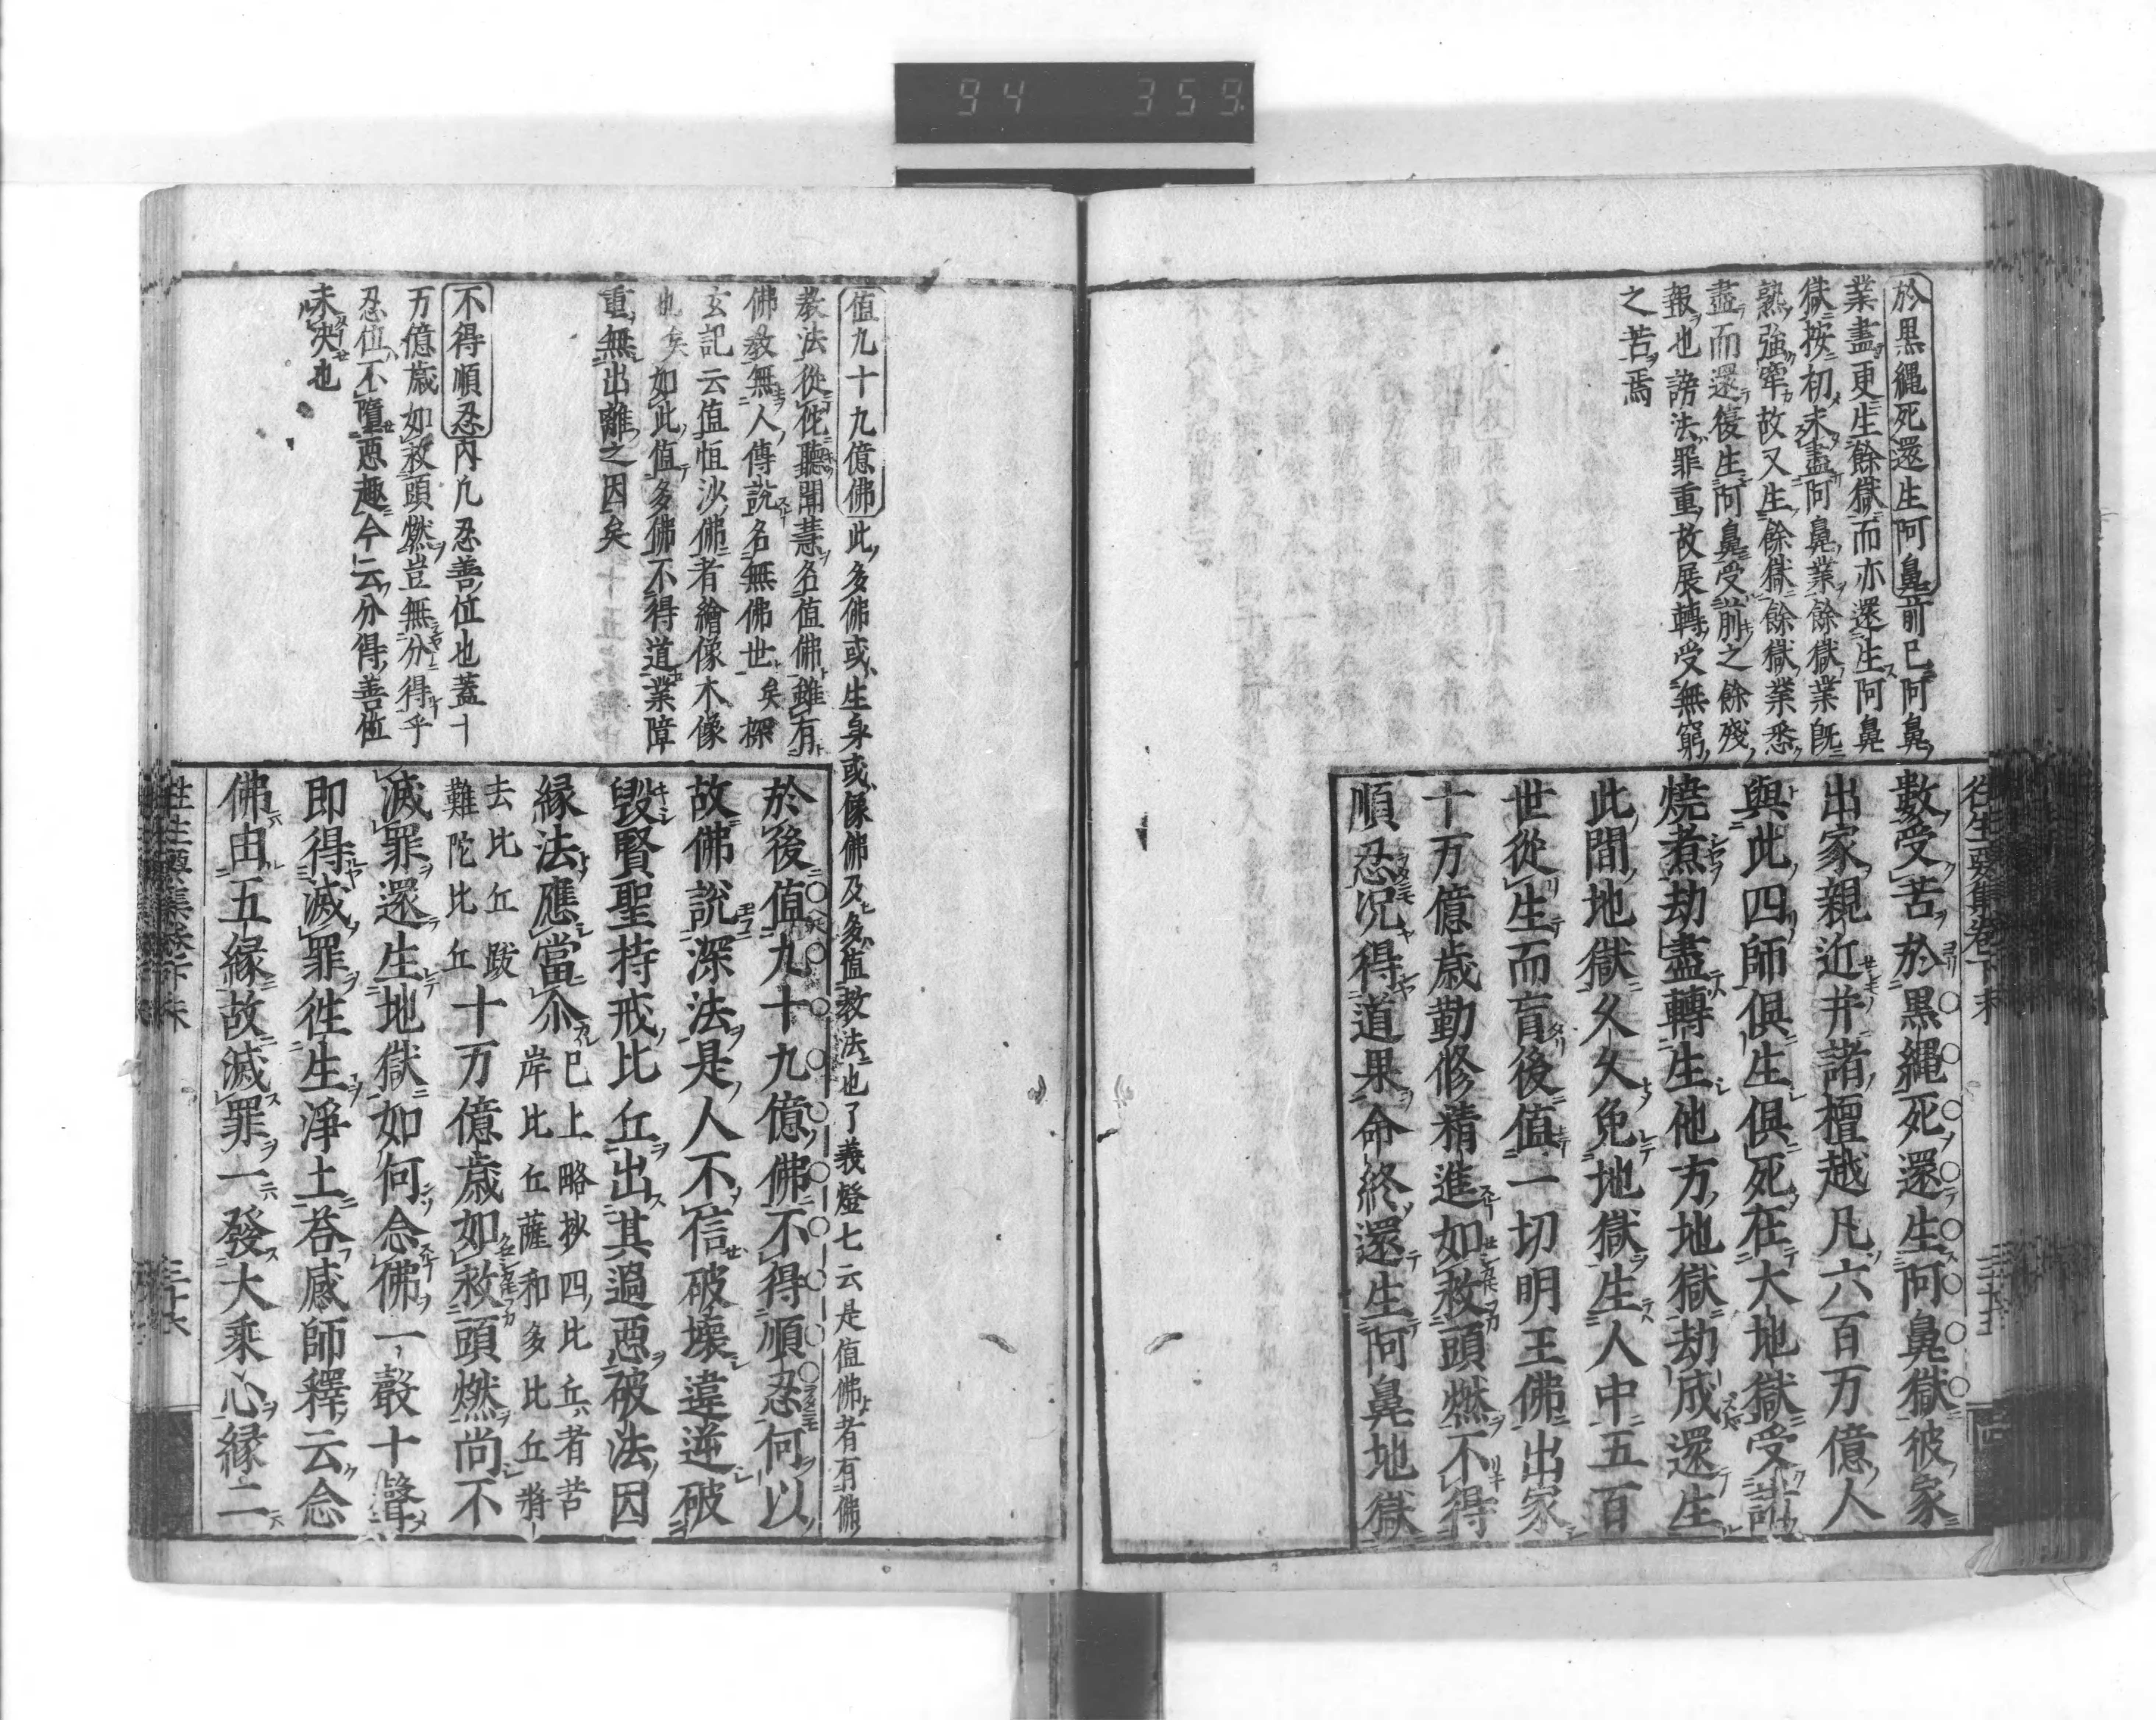 94 359
於黒縄死還生阿鼻前已阿鼻
業盡更生餘獄而亦還生阿鼻
獄按初未盡阿鼻業餘獄業既
熟強牽故又生餘獄餘獄業悉
盡而還復生阿鼻受前之餘殘
報也謗法罪重故展轉受無窮
之苦焉
往生要集卷下末
數受苦於黒縄死還生阿鼻獄彼家
出家親近并諸檀越凡六百万億人
與此四師俱生俱死在大地獄受諸
燒煮劫盡轉生他方地獄劫成還生
此間地獄久久免地獄生人中五百
世從生而盲後値一切明王佛出家
十万億歳勤修精進如救頭燃不得
順忍況得道果命終還生阿鼻地獄
値九十九億佛此多佛或生身或像佛及多値教法也了義燈七云是値佛者有佛
教法從佗聽聞慧名値佛雖有
佛教無人傳説名無佛世矣探
玄記云値恒沙佛者繪像木像
也矣如此値多佛不得道業障
重無出離之因矣
不得順忍内凡忍善位也蓋十
万億歳如救頭燃豈無分得乎
忍位不墮惡趣今云分得善位
未决也
於後値九十九億佛不得順忍何以
故佛說深法是人不信破壞違逆破
毀賢聖持戒比丘出其過惡破法因
縁法應當尒已上略抄四比丘者苦
岸比丘薩和多比丘將
去比丘跋
難陀比丘十万億歳如救頭燃尚不
滅罪還生地獄如何念佛一聲十聲
即得滅罪徃生淨土荅感師釋云念
佛由五縁故滅罪一發大乘心縁二
往生要集卷下末
三十六